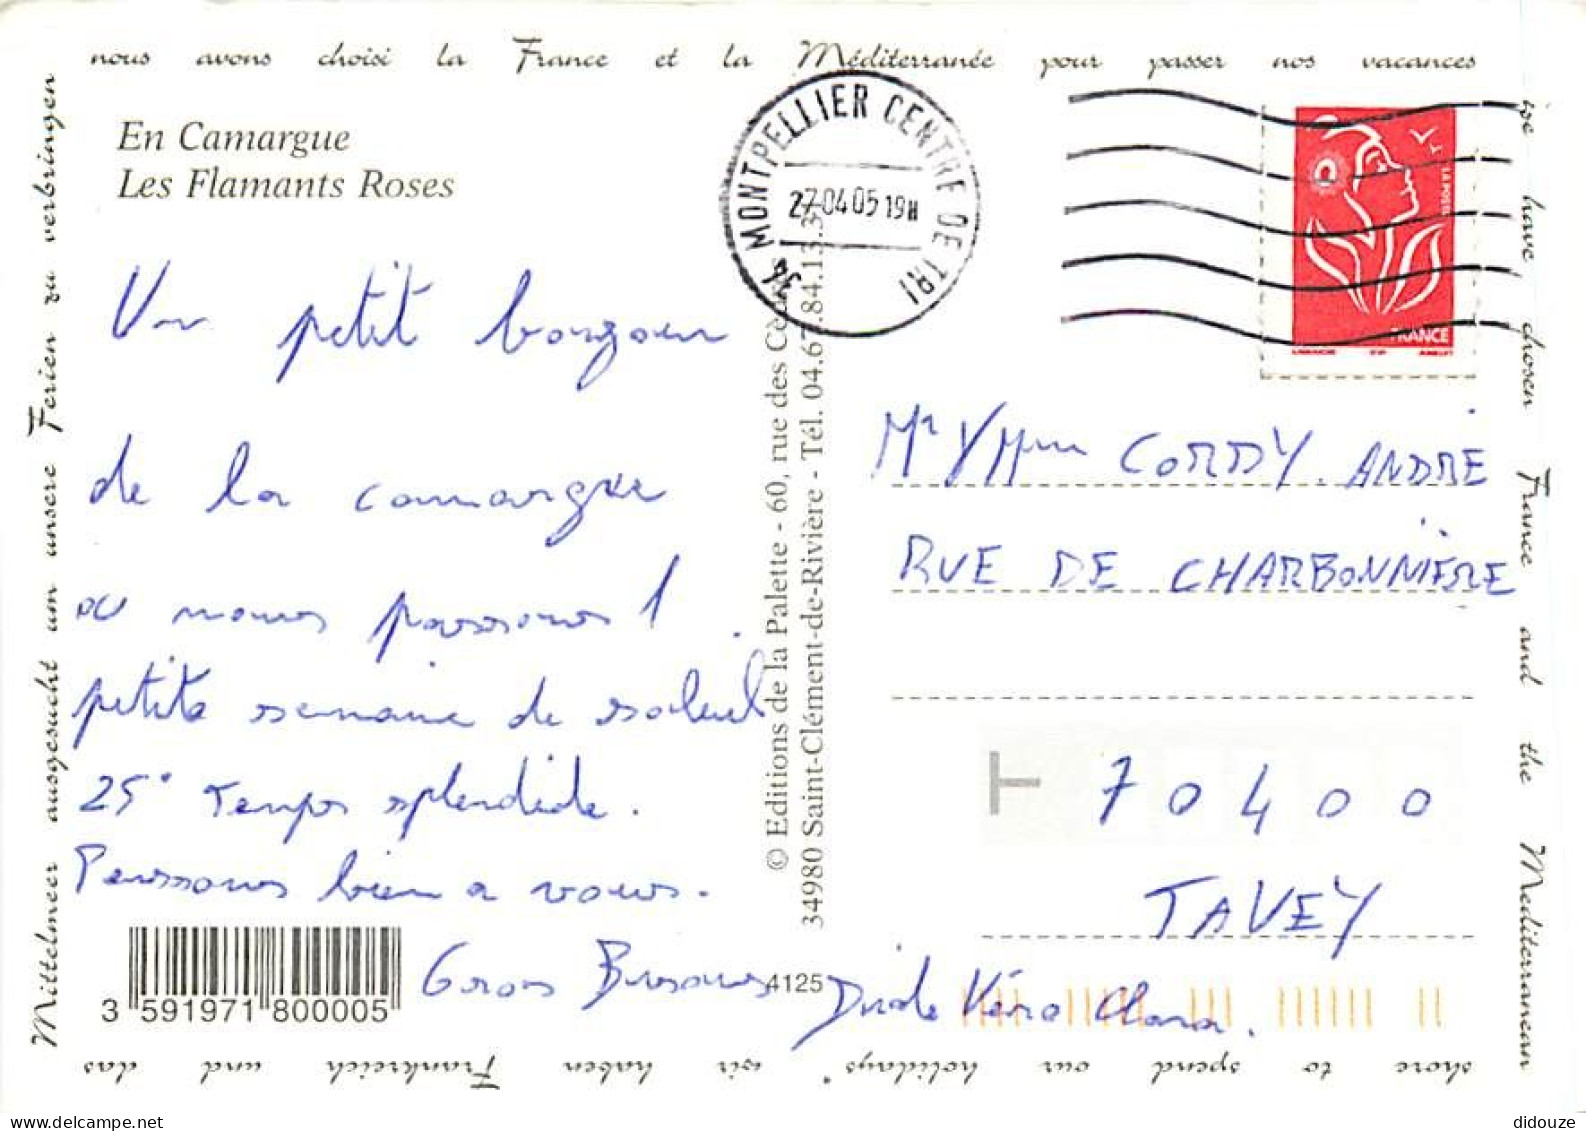 nous avons choisi la France et la Méditerranée pour passer nos vacances
we have chosen France and the Mediterranean
shore to spend our holidays"
wir haben Frankreich und das
Mittelmeer ausgesucht um unsere Ferien zu verbringen
En Camargue
Les Flamants Roses
34 MONTPELLIER CENTRE DE TRI
27-04-05 19H
LA POSTE
FRANCE
Un petit bonjour
de la camargue
ou nous passons 1
petite semaine de soleil
25° Temps splendide.
Penssons bien a vous.
Gros Bisous
Véro Clara.
© Editions de la Palette - 60, rue des
34980 Saint-Clément-de-Rivière - Tél. 04.67.84.13.3
4125
3 591971 800005
Mr / Mme CORDY. ANDRÉ
RUE DE CHARBONNIÈRE
T
70400
TAVEY
didouze